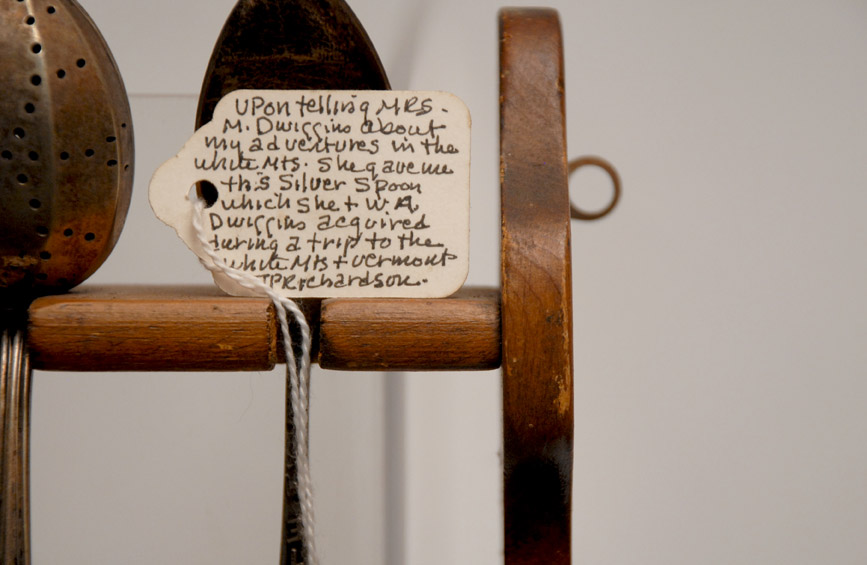 UPon telling MRS.
M. Dwiggins about
my adventures in the
white Mts. She gave me
this Silver Spoon
which She + W.A.
Dwiggins acquired
during a trip to the
white Mts + vermont
JPRichardson.